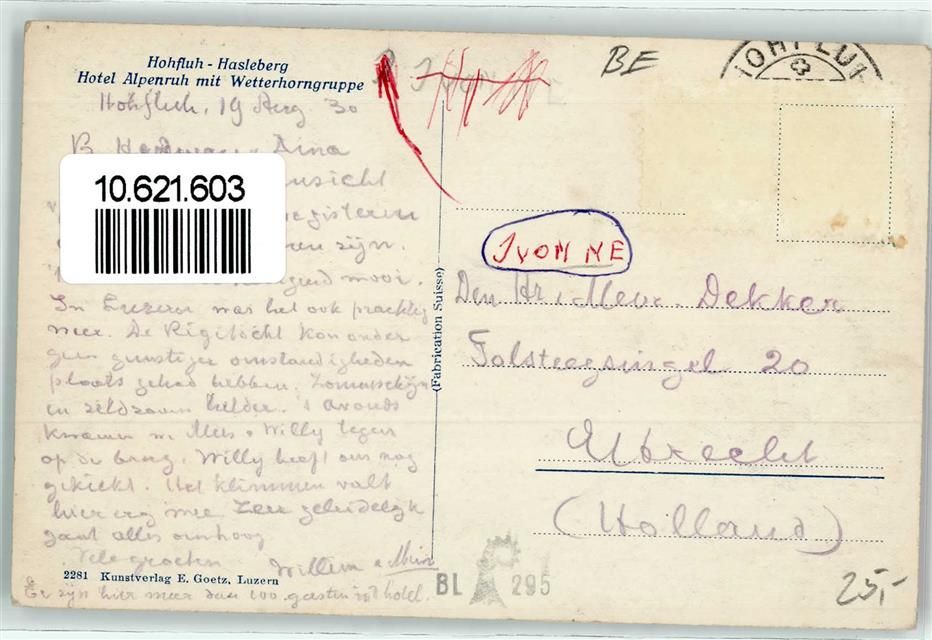 Hohfluh - Hasleberg
Hotel Alpenruh mit Wetterhorngruppe
Hohfluh, 19 Aug. 30
B. Dina
10.621.603
registeren
zijn.
mooi.
In Luzern was het ook prachtig
weer. De Rigitocht kon onder
geen gunstiger omstandigheden
plaats gehad hebben. Zonneschijn
en zeldzaam helder. 's avonds
kwamen we Mels + Willy tegen
op de brug. Willy heeft ons nog
gekiekt. Het klimmen valt
hier erg mee. Zeer geleidelijk
gaat alles omhoog
Vele groeten Willem + Mien
2281 Kunstverlag E. Goetz, Luzern
Er zijn hier meer dan 100 gasten in 't hotel.
(Fabrication Suisse)
BE
HOHFLUH
IVONNE
Den Hr. + Mevr. Dekker
Tolsteegsingel 20
Utrecht
(Holland)
BL 295
25,-